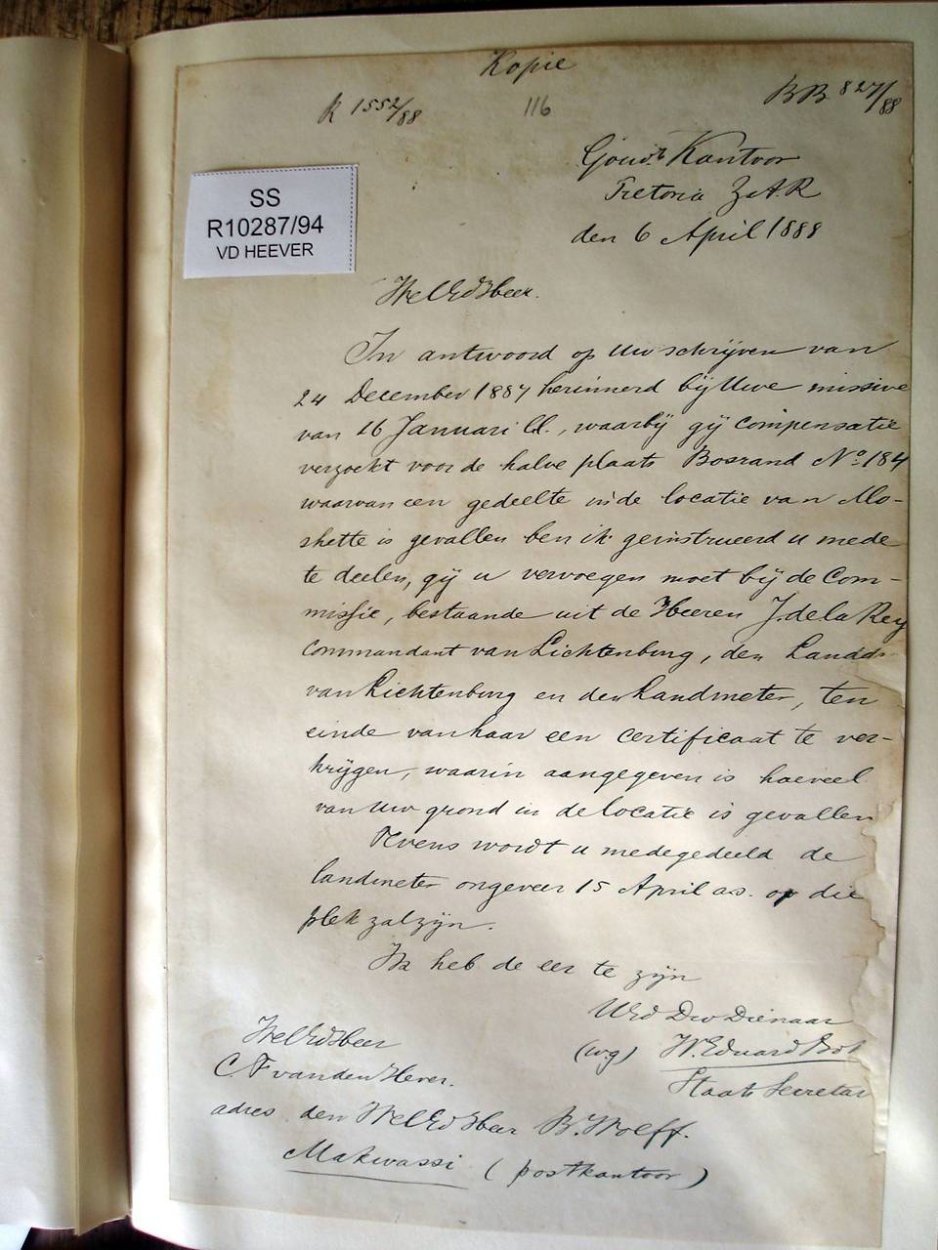 Kopie
R 1552/88 116 BB 827/88
Gouvts Kantoor
Pretoria Z.A.R
den 6 April 1888
SS
R10287/94
VD HEEVER
WelEdHeer.
In antwoord op Uw schrijven van
24 December 1887 herinnerd bij Uwe missive
van 16 Januari ll., waarbij gij compensatie
verzoekt voor de halve plaats Bosrand No 184
waarvan een gedeelte in de locatie van Mo-
shette is gevallen ben ik geinstrueerd u mede
te deelen, gij u vervoegen moet bij de Com-
missie, bestaande uit de Heeren J. de la Rey
Commandant van Lichtenburg, den Landd-
van Lichtenburg en den Landmeter, ten
einde van haar een certificaat te ver-
krijgen, waarin aangegeven is hoeveel
van Uw grond in de locatie is gevallen
Tevens wordt u medegedeeld de
landmeter ongeveer 15 April a.s. op die
plek zal zijn.
Ik heb de eer te zijn
UEd Dw Dienaar
(w.g) W. Eduard Bok
Staats Secretar
WelEdHeer
C. F van den Hever.
adres den WelEdHeer B. Wolff.
Makwassi (postkantoor)